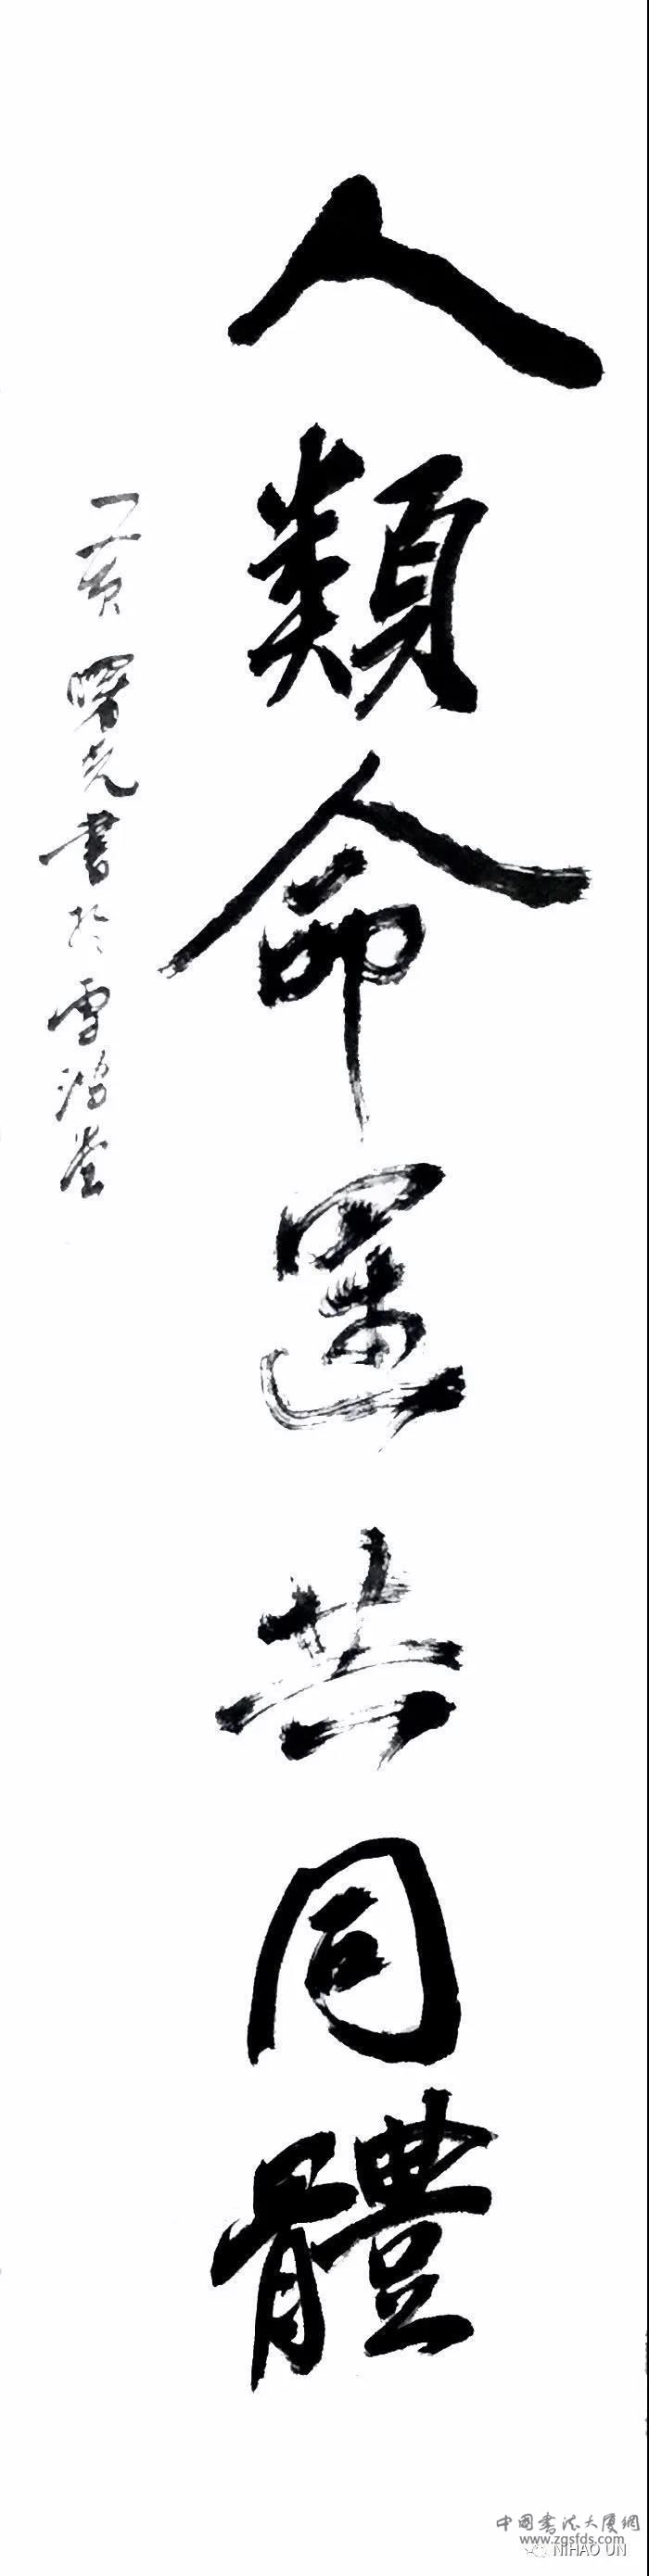 人類命運共同體
曙光書於雪鴻堂
中國書法大廈網
www.zgsfds.com
NIHAO UN